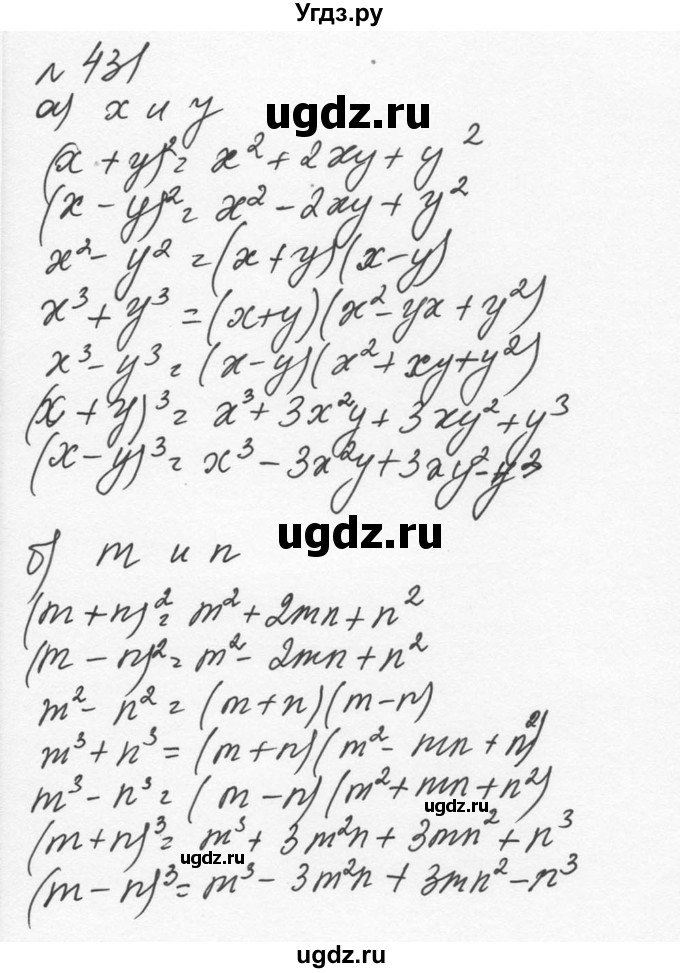 Угдз.ру
№ 431
а) x и y
ugdz.ru
(x + y)² = x² + 2xy + y²
(x - y)² = x² - 2xy + y²
x² - y² = (x + y)(x - y)
x³ + y³ = (x+y)(x² - yx + y²)
x³ - y³ = (x-y)(x² + xy + y²)
(x + y)³ = x³ + 3x²y + 3xy² + y³
(x - y)³ = x³ - 3x²y + 3xy² - y³
ugdz.ru
б) m и n
(m + n)² = m² + 2mn + n²
(m - n)² = m² - 2mn + n²
m² - n² = (m + n)(m - n)
m³ + n³ = (m + n)(m² - mn + n²)
m³ - n³ = (m - n)(m² + mn + n²)
ugdz.ru
(m + n)³ = m³ + 3m²n + 3mn² + n³
ugdz.ru
(m - n)³ = m³ - 3m²n + 3mn² - n³
ugdz.ru